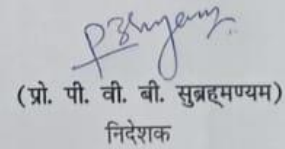 (प्रो. पी. वी. बी. सुब्रह्मण्यम)
निदेशक